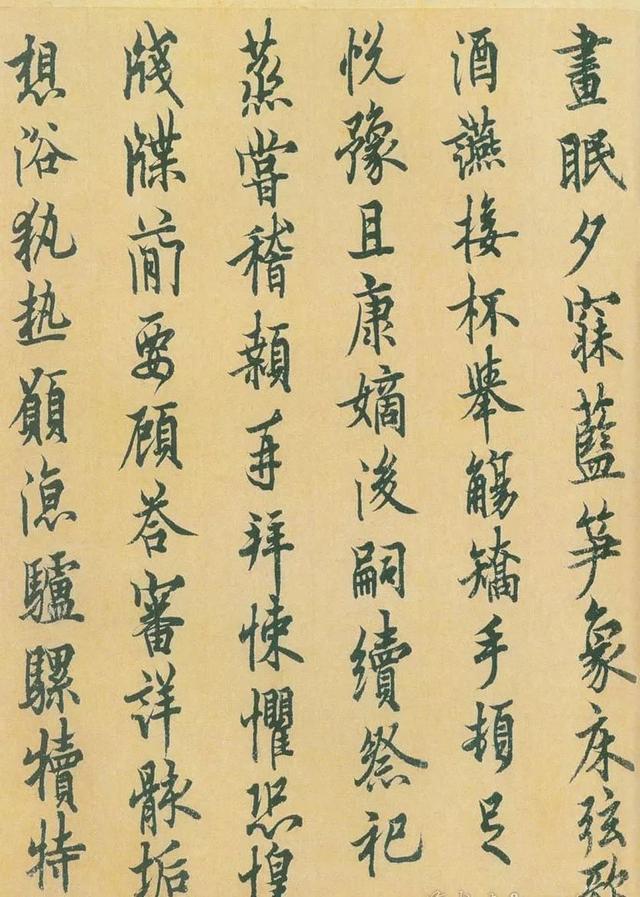 晝眠夕寐藍笋象床弦歌
酒讌接杯舉觴矯手頓足
悅豫且康嫡後嗣續祭祀
蒸嘗稽顙再拜悚懼恐惶
牋牒簡要顧答審詳骸垢
想浴執熱願涼驢騾犢特